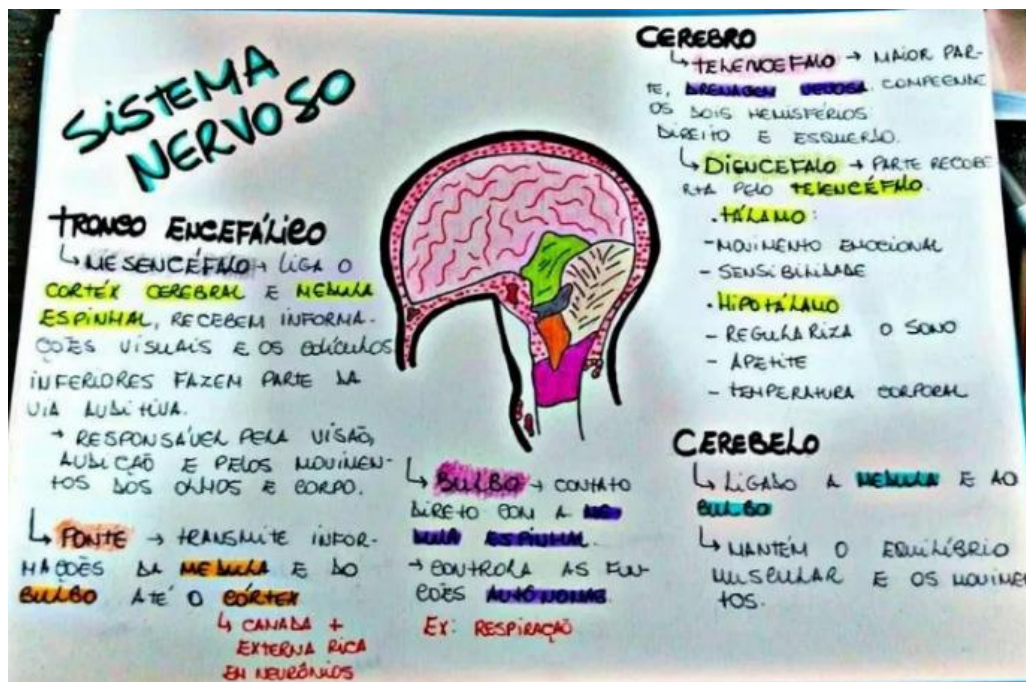 SISTEMA
NERVOSO
TRONCO ENCEFÁLICO
↳ MESENCÉFALO → LIGA O
CORTÉX CEREBRAL E MEDULA
ESPINHAL, RECEBEM INFORMA-
ÇÕES VISUAIS E OS COLÍCULOS
INFERIORES FAZEM PARTE DA
VIA AUDITIVA.
→ RESPONSÁVEL PELA VISÃO,
AUDIÇÃO E PELOS MOVIMEN-
TOS DOS OLHOS E CORPO.
↳ PONTE → TRANSMITE INFOR-
MAÇÕES DA MEDULA E DO
BULBO ATÉ O CÓRTEX
↳ CAMADA +
EXTERNA RICA
EM NEURÔNIOS
↳ BULBO → CONTATO
DIRETO COM A ME-
DULA ESPINHAL.
→ CONTROLA AS FUN-
ÇÕES AUTÔNOMAS.
EX: RESPIRAÇÃO
CEREBRO
↳ TELENCEFALO → MAIOR PAR-
TE, DRENAGEM VENOSA. COMPEENDE
OS DOIS HEMISFÉRIOS:
DIREITO E ESQUERDO.
↳ DIENCEFALO → PARTE RECOBE
RTA PELO TELENCÉFALO.
.TÁLAMO:
- MOVIMENTO EMOCIONAL
- SENSIBILIDADE
.HIPOTÁLAMO
- REGULARIZA O SONO
- APETITE
- TEMPERATURA CORPORAL
CEREBELO
↳ LIGADO A MEDULA E AO
BULBO
↳ MANTÉM O EQUILÍBRIO
MUSCULAR E OS MOVIMEN
TOS.